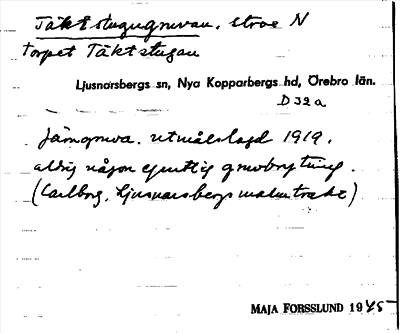 Täktstugugruvan, stroe N
torpet Täktstugan
Ljusnarsbergs sn, Nya Kopparbergs hd, Örebro län.
D 32 a
Järngruva. utmålslagd 1919.
aldrig någon egentlig gruvbrytning.
(Carlborg, Ljusnarsbergs malmtrakt)
MAJA FORSSLUND 1945